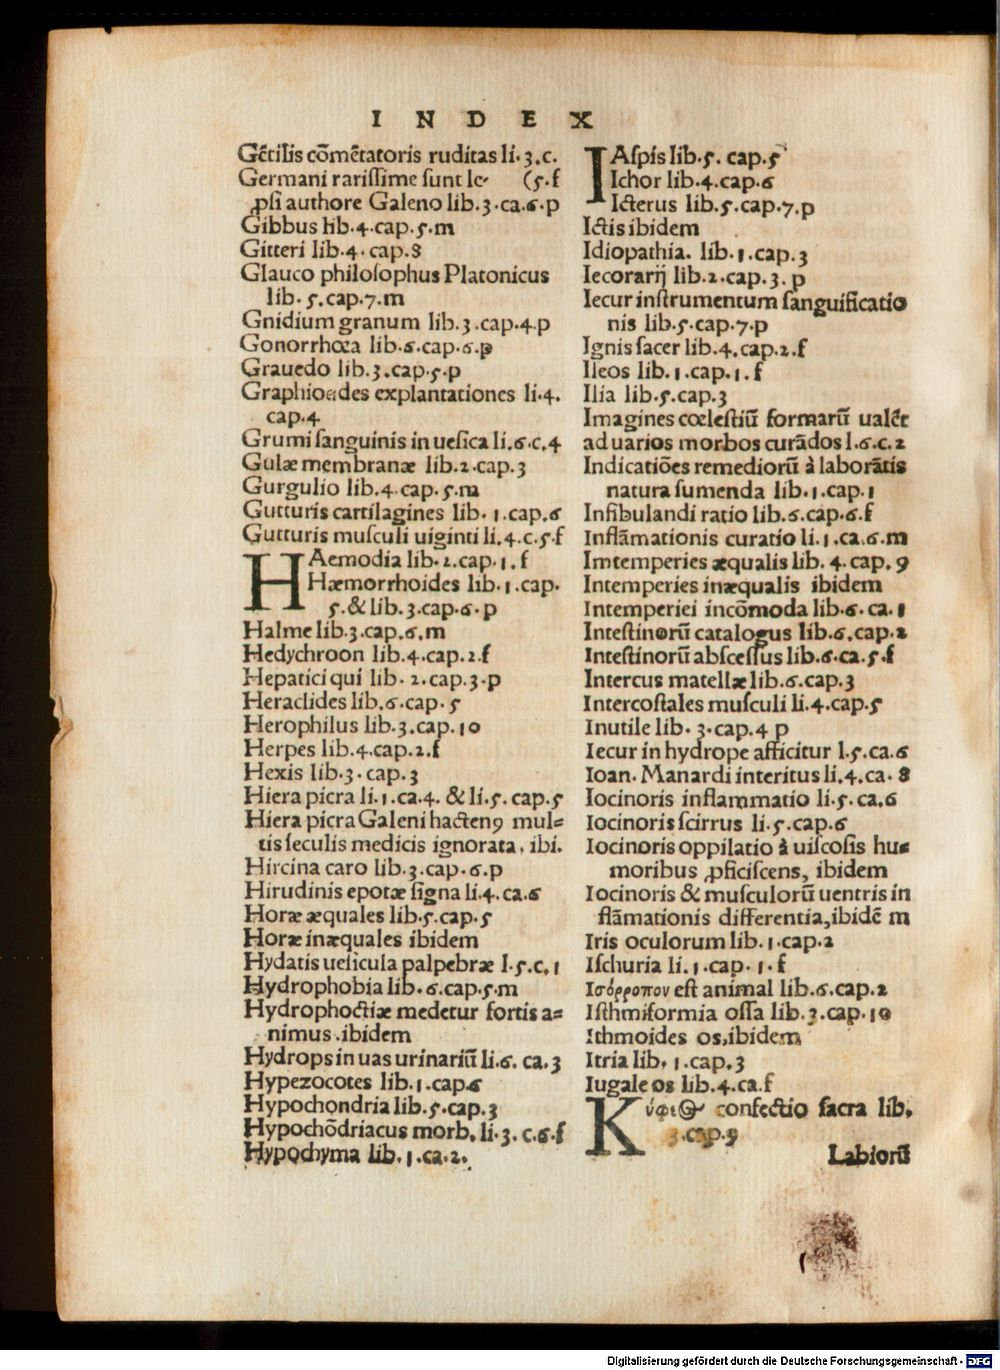 INDEX
Gẽtilis cõmẽtatoris ruditas li.3.c.
Germani rarissime sunt le- (5.f
ꝓsi authore Galeno lib.3.ca.6.p
Gibbus lib.4.cap.5.m
Gitteri lib.4.cap.8
Glauco philosophus Platonicus
lib.5.cap.7.m
Gnidium granum lib.3.cap.4.p
Gonorrhœa lib.6.cap.6.p
Grauedo lib.3.cap.5.p
Graphioedes explantationes li.4.
cap.4
Grumi sanguinis in uesica li.6.c.4
Gulæ membranæ lib.2.cap.3
Gurgulio lib.4.cap.5.m
Gutturis cartilagines lib.1.cap.6
Gutturis musculi uiginti li.4.c.5.f
HAemodia lib.2.cap.1.f
Hæmorrhoides lib.1.cap.
5.& lib.3.cap.6.p
Halme lib.3.cap.6.m
Hedychroon lib.4.cap.2.f
Hepatici qui lib.2.cap.3.p
Heraclides lib.6.cap.5
Herophilus lib.3.cap.10
Herpes lib.4.cap.2.f
Hexis lib.3.cap.3
Hiera picra li.1.ca.4. & li.5.cap.5
Hiera picra Galeni hactenꝰ mul=
tis seculis medicis ignorata, ibi.
Hircina caro lib.3.cap.6.p
Hirudinis epotæ signa li.4.ca.6
Horæ æquales lib.5.cap.5
Horæ inæquales ibidem
Hydatis uesicula palpebræ l.5.c.1
Hydrophobia lib.6.cap.5.m
Hydrophoctiæ medetur fortis a=
nimus.ibidem
Hydrops in uas urinariũ li.6.ca.3
Hypezocotes lib.1.cap.6
Hypochondria lib.5.cap.3
Hypochõdriacus morb. li.3.c.6.f
Hypochyma lib.1.ca.2.
IAspis lib.5. cap.5
Ichor lib.4.cap.6
Icterus lib.5.cap.7.p
Ictis ibidem
Idiopathia. lib.1.cap.3
Iecorarij lib.2.cap.3.p
Iecur instrumentum sanguificatio
nis lib.5.cap.7.p
Ignis sacer lib.4.cap.2.f
Ileos lib.1.cap.1.f
Ilia lib.5.cap.3
Imagines cœlestiũ formarũ ualẽt
ad uarios morbos curãdos l.6.c.2
Indicatiões remediorũ à laborãtis
natura sumenda lib.1.cap.1
Infibulandi ratio lib.6.cap.6.f
Inflãmationis curatio li.1.ca.6.m
Imtemperies æqualis lib.4.cap.9
Intemperies inæqualis ibidem
Intemperiei incõmoda lib.6.ca.1
Intestinorũ catalogus lib.6.cap.2
Intestinorũ abscessus lib.6.ca.5.f
Intercus matellæ lib.6.cap.3
Intercostales musculi li.4.cap.5
Inutile lib.3.cap.4 p
Iecur in hydrope afficitur l.5.ca.6
Ioan. Manardi interitus li.4.ca.8
Iocinoris inflammatio li.5.ca.6
Iocinoris scirrus li.5.cap.6
Iocinoris oppilatio à uiscosis hu=
moribus ꝓficiscens, ibidem
Iocinoris & musculorũ uentris in
flãmationis differentia, ibidẽ m
Iris oculorum lib.1.cap.2
Ischuria li.1.cap.1.f
Ισόρροπον est animal lib.6.cap.2
Isthmiformia ossa lib.3.cap.10
Ithmoides os, ibidem
Itria lib.1.cap.3
Iugale os lib.4.ca.f
Κύφι confectio sacra lib.
3.cap.9
Labiorũ
Digitalisierung gefördert durch die Deutsche Forschungsgemeinschaft - DFG